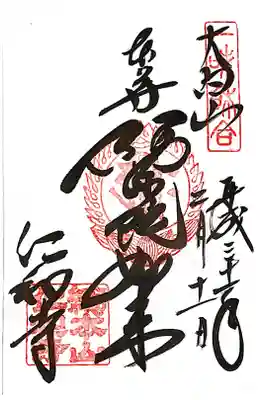 大内山
平成三十一年
二月十一日
奉拝
阿弥陀如来
仁和寺